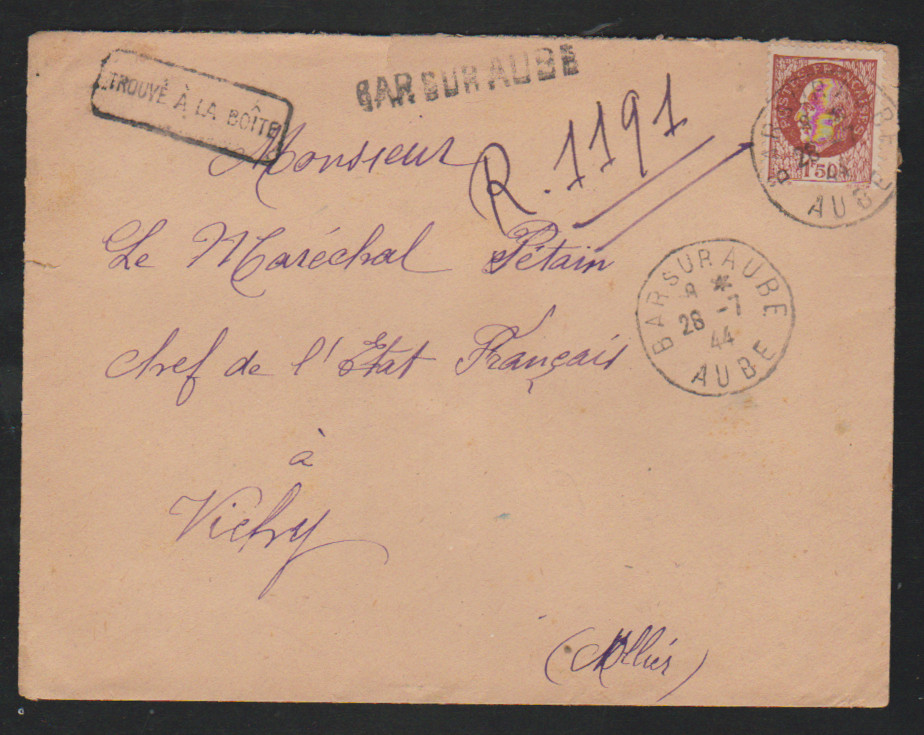 TROUVÉ À LA BOÎTE
BAR SUR AUBE
R. 1191
POSTES FRANÇAISES
1F50
AUBE
Monsieur
Le Maréchal Pétain
Chef de l'Etat Français
à
Vichy
(Allier)
BAR SUR AUBE
8 *
28 -7
44
AUBE